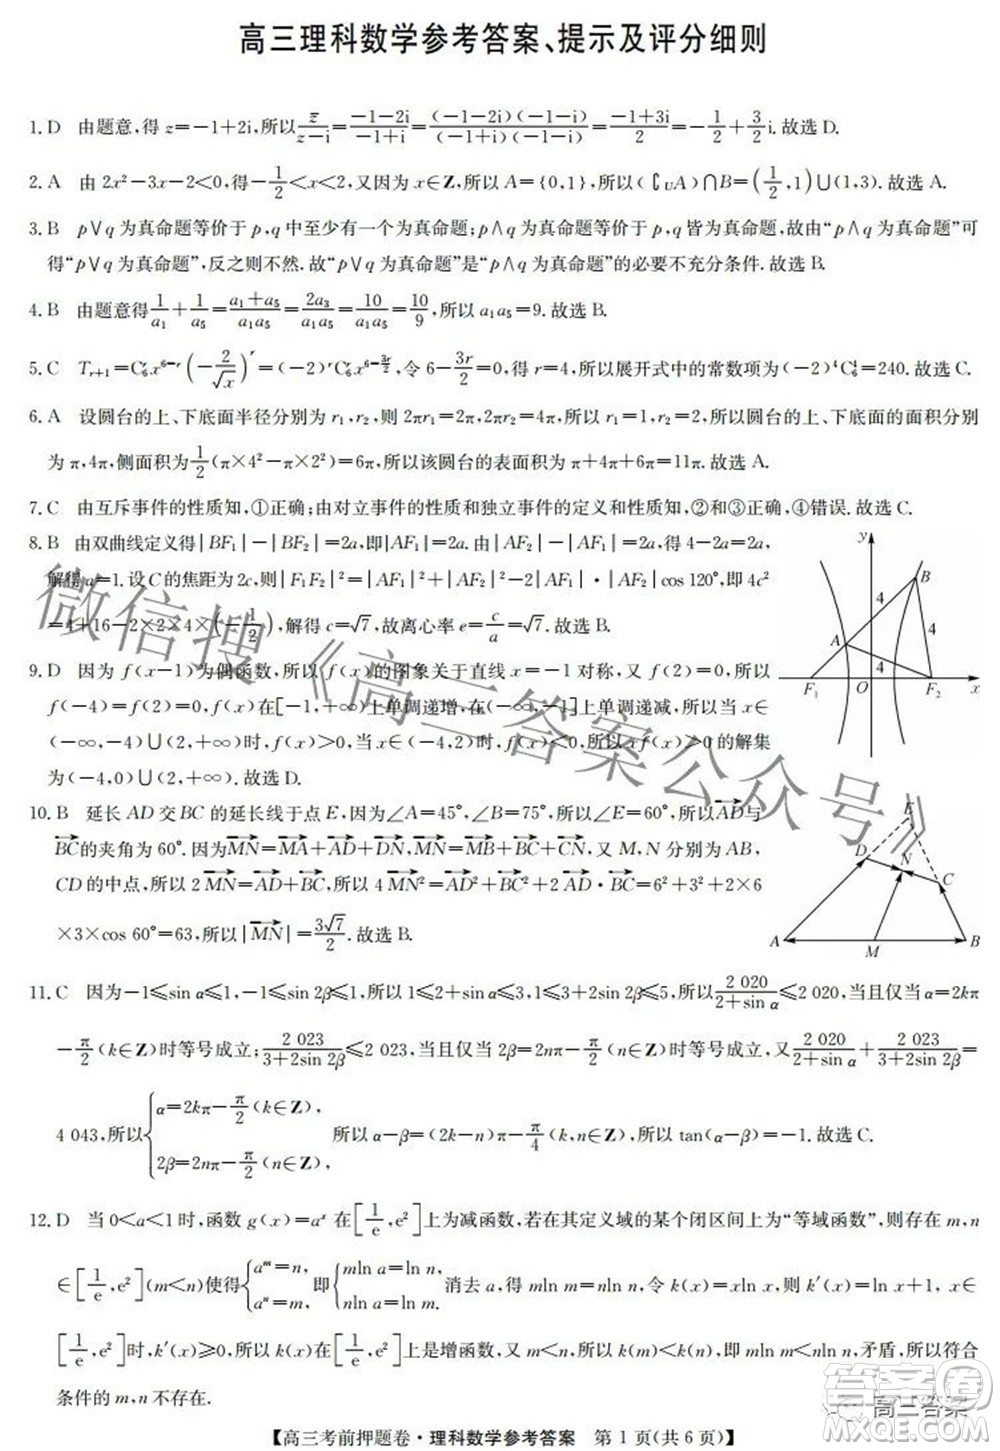 高三理科数学参考答案、提示及评分细则
1. D　由题意,得 z=-1+2i,所以 \frac{\bar{z}}{z-i}=\frac{-1-2i}{-1+i}=\frac{(-1-2i)(-1-i)}{(-1+i)(-1-i)}=\frac{-1+3i}{2}=-\frac{1}{2}+\frac{3}{2}i.故选 D.
2. A　由 2x²-3x-2<0,得-\frac{1}{2}<x<2,又因为 x∈Z,所以 A={0,1},所以(∁_UA)∩B=(\frac{1}{2},1)∪(1,3).故选 A.
3. B　p∨q 为真命题等价于 p,q 中至少有一个为真命题;p∧q 为真命题等价于 p,q 皆为真命题,故由“p∧q 为真命题”可
得“p∨q 为真命题”,反之则不然.故“p∨q 为真命题”是“p∧q 为真命题”的必要不充分条件.故选 B.
4. B　由题意得\frac{1}{a_1}+\frac{1}{a_5}=\frac{a_1+a_5}{a_1a_5}=\frac{2a_3}{a_1a_5}=\frac{10}{a_1a_5}=\frac{10}{9},所以 a_1a_5=9.故选 B.
5. C　T_{r+1}=C_6^r x^{6-r}(-\frac{2}{\sqrt{x}})^r=(-2)^r C_6^r x^{6-\frac{3r}{2}},令 6-\frac{3r}{2}=0,得 r=4,所以展开式中的常数项为(-2)^4C_6^4=240.故选 C.
6. A　设圆台的上、下底面半径分别为 r_1,r_2,则 2πr_1=2π,2πr_2=4π,所以 r_1=1,r_2=2,所以圆台的上、下底面的面积分别
为 π,4π,侧面积为\frac{1}{2}(π×4²-π×2²)=6π,所以该圆台的表面积为 π+4π+6π=11π.故选 A.
7. C　由互斥事件的性质知,①正确;由对立事件的性质和独立事件的定义和性质知,②和③正确,④错误.故选 C.
8. B　由双曲线定义得|BF_1|-|BF_2|=2a,即|AF_1|=2a.由|AF_2|-|AF_1|=2a,得 4-2a=2a,
解得 a=1.设 C 的焦距为 2c,则|F_1F_2|²=|AF_1|²+|AF_2|²-2|AF_1|·|AF_2|cos 120°,即 4c²
=4+16-2×2×4×(-\frac{1}{2}),解得 c=\sqrt{7},故离心率 e=\frac{c}{a}=\sqrt{7}.故选 B.
9. D　因为 f(x-1)为偶函数,所以 f(x)的图象关于直线 x=-1 对称,又 f(2)=0,所以
f(-4)=f(2)=0,在[-1,+∞)上单调递增,在(-∞,-1]上单调递减,所以当 x∈
(-∞,-4)∪(2,+∞)时,f(x)>0,当 x∈(-4,2)时,f(x)<0,所以 f(x)>0 的解集
为(-4,0)∪(2,+∞).故选 D.
10. B　延长 AD 交 BC 的延长线于点 E,因为∠A=45°,∠B=75°,所以∠E=60°,所以\vec{AD}与
\vec{BC}的夹角为 60°.因为\vec{MN}=\vec{MA}+\vec{AD}+\vec{DN},\vec{MN}=\vec{MB}+\vec{BC}+\vec{CN},又 M,N 分别为 AB,
CD 的中点,所以 2\vec{MN}=\vec{AD}+\vec{BC},所以 4\vec{MN}²=\vec{AD}²+\vec{BC}²+2\vec{AD}·\vec{BC}=6²+3²+2×6
×3×cos 60°=63,所以|\vec{MN}|=\frac{3\sqrt{7}}{2}.故选 B.
11. C　因为-1≤sin α≤1,-1≤sin 2β≤1,所以 1≤2+sin α≤3,1≤3+2sin 2β≤5,所以\frac{2 020}{2+sin α}≤2 020,当且仅当 α=2kπ
-\frac{π}{2}(k∈Z)时等号成立;\frac{2 023}{3+2sin 2β}≤2 023,当且仅当 2β=2nπ-\frac{π}{2}(n∈Z)时等号成立,又\frac{2 020}{2+sin α}+\frac{2 023}{3+2sin 2β}=
4 043,所以{α=2kπ-\frac{π}{2}(k∈Z), 2β=2nπ-\frac{π}{2}(n∈Z) 所以 α-β=(2k-n)π-\frac{π}{4}(k,n∈Z),所以 tan(α-β)=-1.故选 C.
12. D　当 0<a<1 时,函数 g(x)=a^x 在[\frac{1}{e},e²]上为减函数,若在其定义域的某个闭区间上为“等域函数”,则存在 m,n
∈[\frac{1}{e},e²](m<n)使得{a^m=n, a^n=m, 即{mln a=ln n, nln a=ln m. 消去 a,得 mln m=nln n,令 k(x)=xln x,则 k′(x)=ln x+1, x∈
[\frac{1}{e},e²]时,k′(x)≥0,所以 k(x)在[\frac{1}{e},e²]上是增函数,又 m<n,所以 k(m)<k(n),即 mln m<nln n,矛盾,所以符合
条件的 m,n 不存在.
【高三考前押题卷·理科数学参考答案　第 1 页(共 6 页)】
y
B
4
4
A
4
F_1
O
F_2
x
E
D
N
C
A
M
B
微信搜《高三答案公众号》
答案圈
高三答案